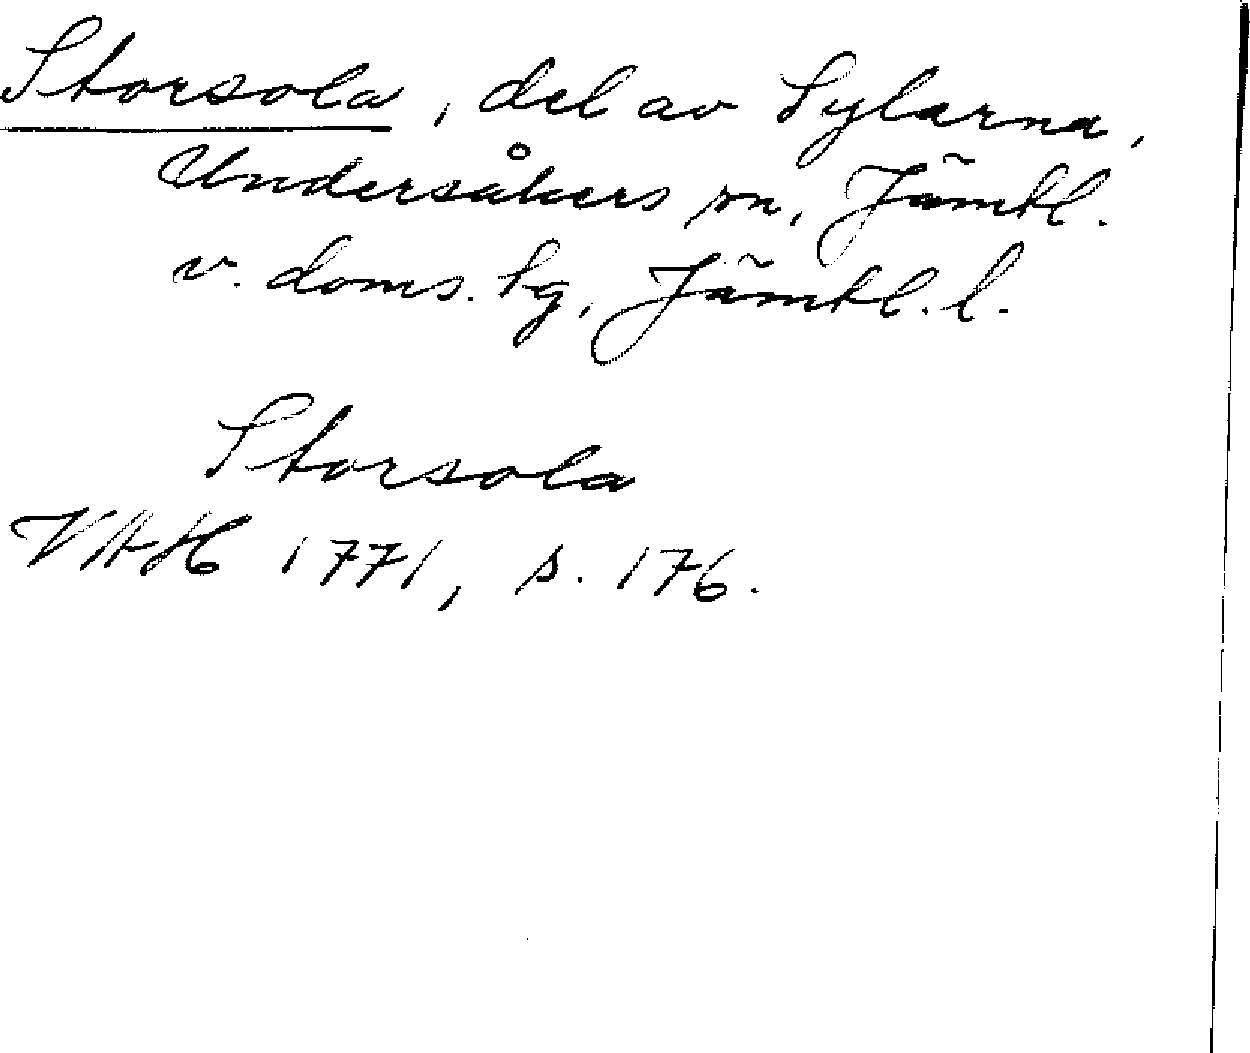 Storsola, del av Sylarna,
Undersåkers sn, Jämtl.
v. doms. sg, Jämtl. l.
Storsola
VAH 1771, s. 176.